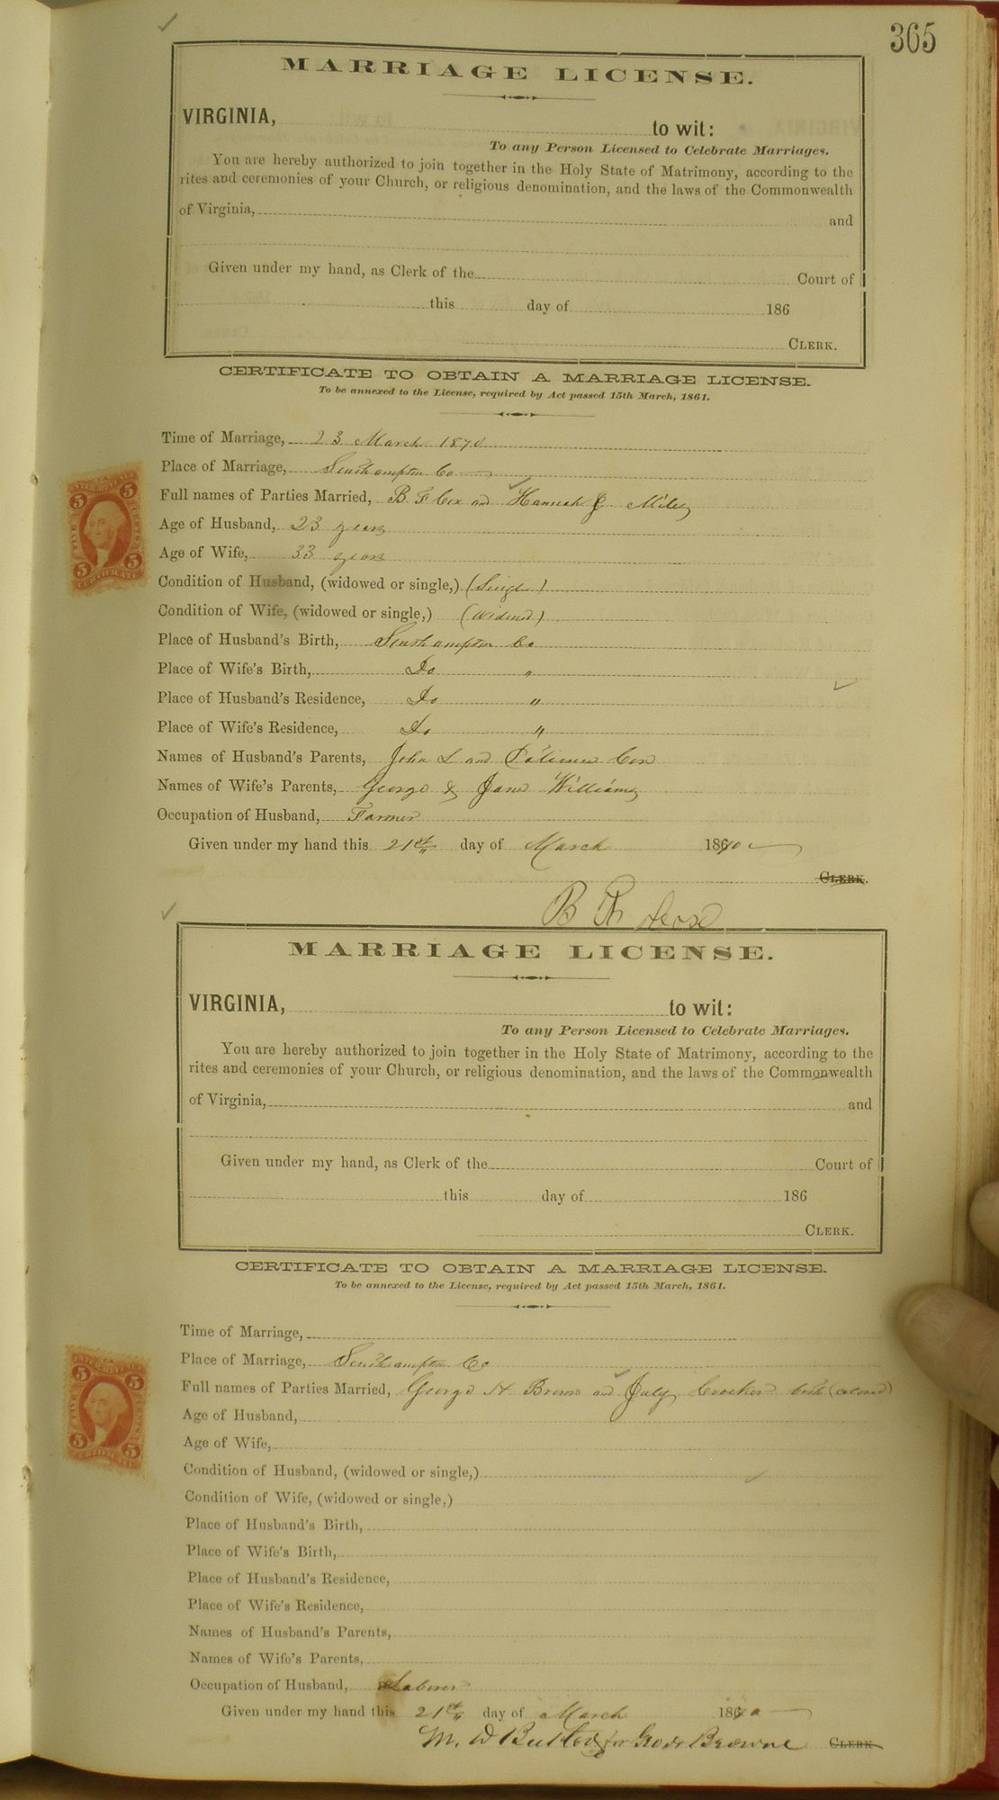 365
MARRIAGE LICENSE.
VIRGINIA, to wit:
To any Person Licensed to Celebrate Marriages.
You are hereby authorized to join together in the Holy State of Matrimony, according to the
rites and ceremonies of your Church, or religious denomination, and the laws of the Commonwealth
of Virginia, and
Given under my hand, as Clerk of the Court of
this day of 186
CLERK.
CERTIFICATE TO OBTAIN A MARRIAGE LICENSE.
To be annexed to the License, required by Act passed 15th March, 1861.
Time of Marriage, 23 March 1870
Place of Marriage, Southampton Co
Full names of Parties Married, B. F Cox and Hannah J Miley
Age of Husband, 23 years
Age of Wife, 33 years
Condition of Husband, (widowed or single,) (Single)
Condition of Wife, (widowed or single,) (Widowed)
Place of Husband's Birth, Southampton Co
Place of Wife's Birth, Do "
Place of Husband's Residence, Do "
Place of Wife's Residence, Do "
Names of Husband's Parents, John L and Cox
Names of Wife's Parents, George & Jane Williams
Occupation of Husband, Farmer
Given under my hand this 21st day of March 1870
CLERK.
B F Cox
MARRIAGE LICENSE.
VIRGINIA, to wit:
To any Person Licensed to Celebrate Marriages.
You are hereby authorized to join together in the Holy State of Matrimony, according to the
rites and ceremonies of your Church, or religious denomination, and the laws of the Commonwealth
of Virginia, and
Given under my hand, as Clerk of the Court of
this day of 186
CLERK.
CERTIFICATE TO OBTAIN A MARRIAGE LICENSE.
To be annexed to the License, required by Act passed 15th March, 1861.
Time of Marriage,
Place of Marriage, Southampton Co
Full names of Parties Married, George H Brown and July Crocker both (colored)
Age of Husband,
Age of Wife,
Condition of Husband, (widowed or single,)
Condition of Wife, (widowed or single,)
Place of Husband's Birth,
Place of Wife's Birth,
Place of Husband's Residence,
Place of Wife's Residence,
Names of Husband's Parents,
Names of Wife's Parents,
Occupation of Husband, Laborer
Given under my hand this 21st day of March 1870
M. D Butler for Geo H Browne CLERK